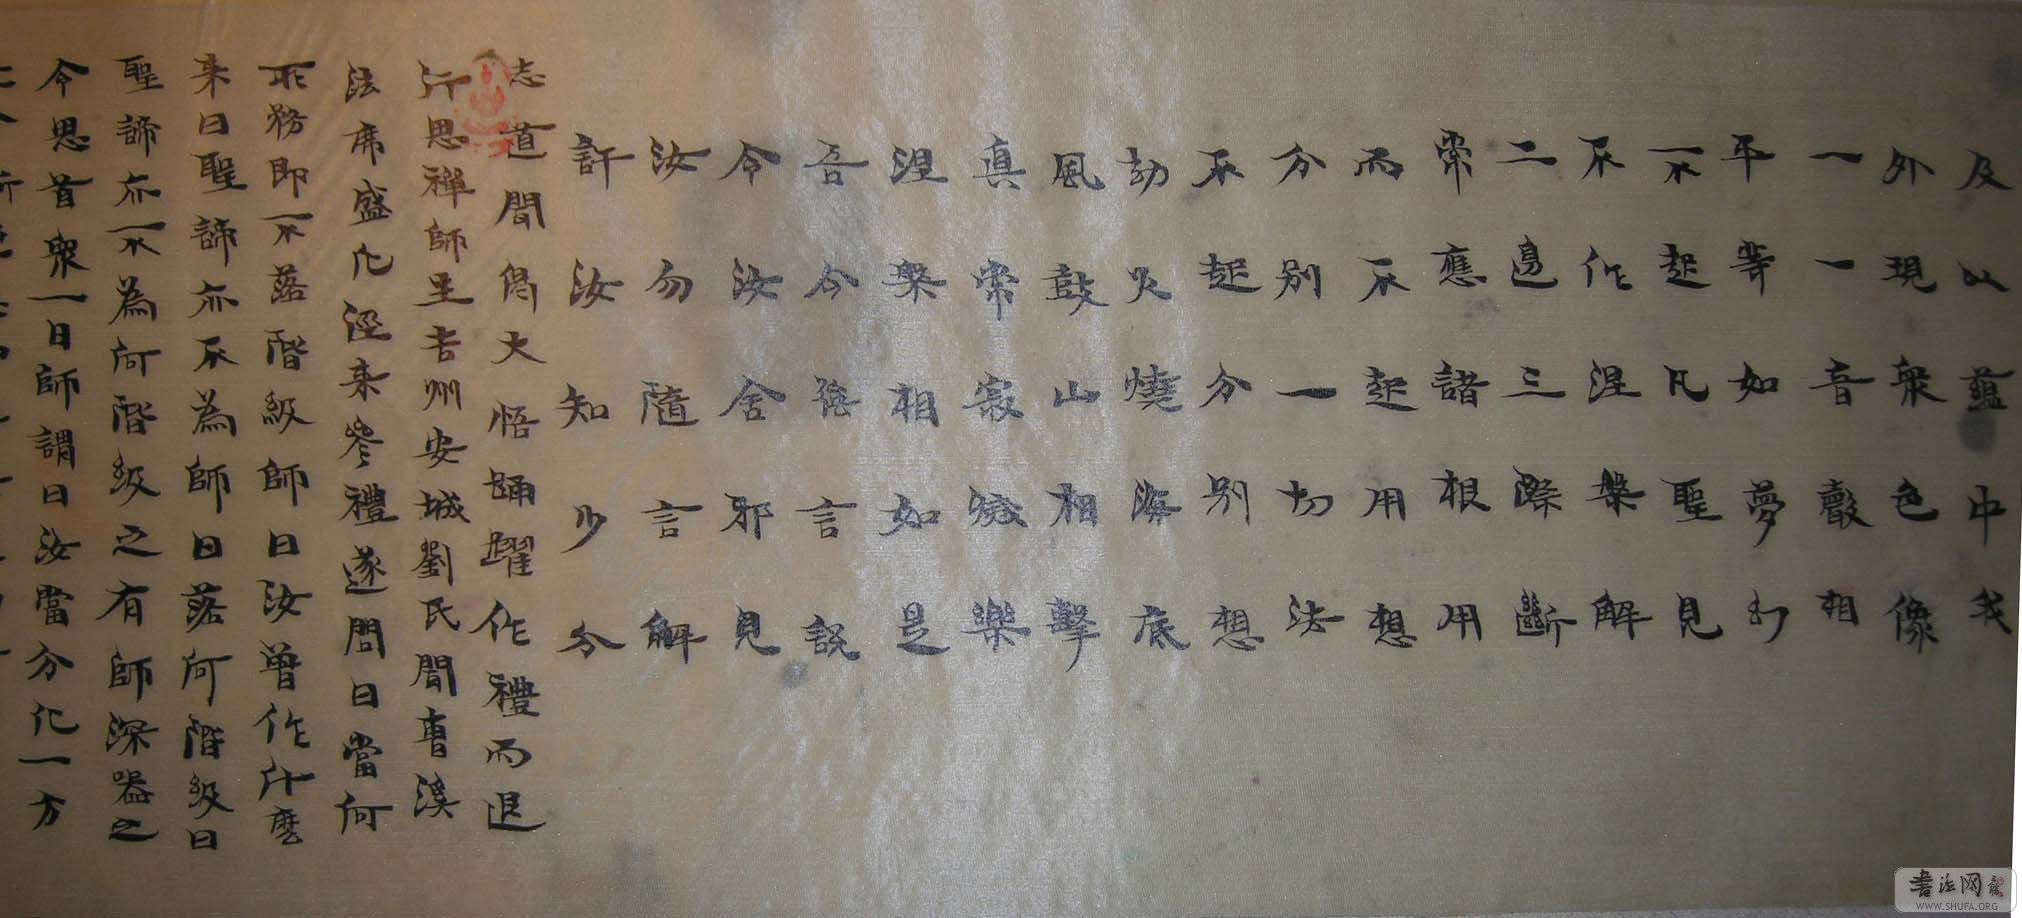 及以蘊中我
外現眾色像
一一音聲相
平等如夢幻
不起凡聖見
不作涅槃解
二邊三際斷
常應諸根用
而不起用想
分別一切法
不起分別想
劫火燒海底
風鼓山相擊
真常寂滅樂
涅槃相如是
吾今強言說
令汝舍邪見
汝勿隨言解
許汝知少分
志道聞偈大悟踊躍作禮而退
行思禪師生吉州安城劉氏聞曹溪
法席盛化徑来參禮遂問曰當何
所務即不落階級師曰汝曾作什麼
来曰聖諦亦不為師曰落何階級曰
聖諦亦不為何階級之有師深器之
令思首眾一日師謂曰汝當分化一方
書法网
WWW.SHUFA.ORG